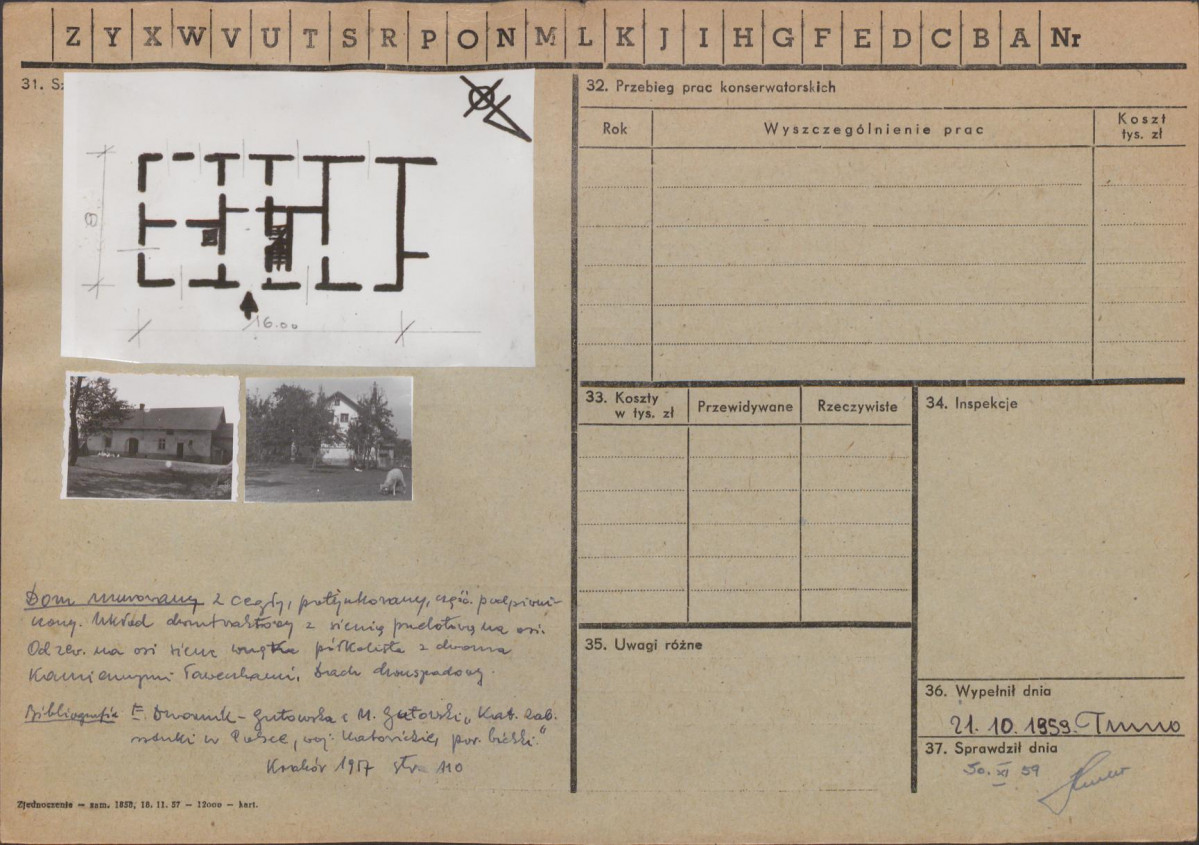 Z Y X W V U T S R P O N M L K J I H G F E D C B A Nr
31. Sz
8
16.00
Dom murowany z cegły, potynkowany, częśc. podpiwni-
czony. Układ dwutraktowy z sienią przelotową na osi.
Od zew. na osi sieni wnęka półkolista z dwoma
Kamiennymi ławeczkami, Dach dwuspadowy.
Bibliografia E. Dwornik-Gutowska i M. Gutowski „Kat. zab.
sztuki w Polsce, woj. Katowickie, pow. bielski."
Kraków 1957 str 110
Zjednoczenie — zam. 1858, 18. 11. 57 — 12000 — kart.
32. Przebieg prac konserwatorskich
Rok Wyszczególnienie prac Koszt
tys. zł
33. Koszty
w tys. zł Przewidywane Rzeczywiste
34. Inspekcje
35. Uwagi różne
36. Wypełnił dnia
21. 10. 1959
37. Sprawdził dnia
30. XI 59